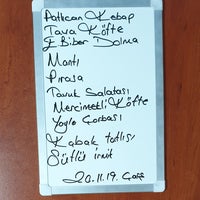 Patlıcan Kebap
Tava Köfte
E. Biber Dolma
Mantı
Pırasa
Tavuk Salatası
Mercimekli Köfte
Yayla Çorbası
Kabak tatlısı
Sütlü irmik
20.11.19. Çarş